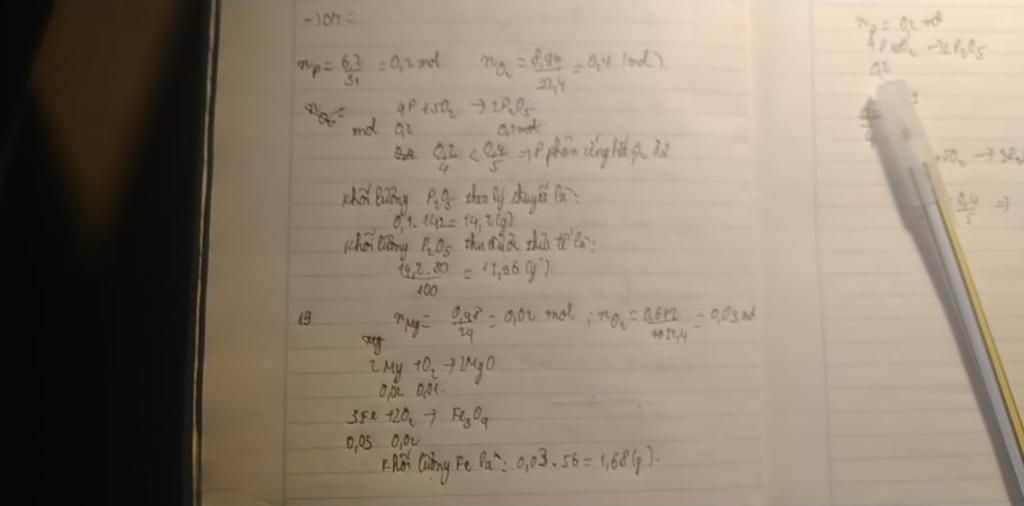 nP = 6,2/31 = 0,2 mol nO2 = 8,96/22,4 = 0,4 (mol).
4P + 5O2 → 2P2O5
mol 0,2 0,1 mol
0,2/4 < 0,4/5 → P phản ứng hết O2 dư
Khối lượng P2O5 theo lý thuyết là:
0,1. 142 = 14,2 (g)
Khối lượng P2O5 thu được thực tế là:
14,2 . 80/100 = 11,36 (g).
19 nMg = 0,48/24 = 0,02 mol ; nO2 = 0,672/22,4 = 0,03 mol
2Mg + O2 → 2MgO
0,02 0,01.
3Fe + 2O2 → Fe3O4
0,03 0,02
Khối lượng Fe là: 0,03 . 56 = 1,68 (g).
nP = 0,2 mol
4P + 5O2 → 2P2O5
0,2
0,4/5 ⇒